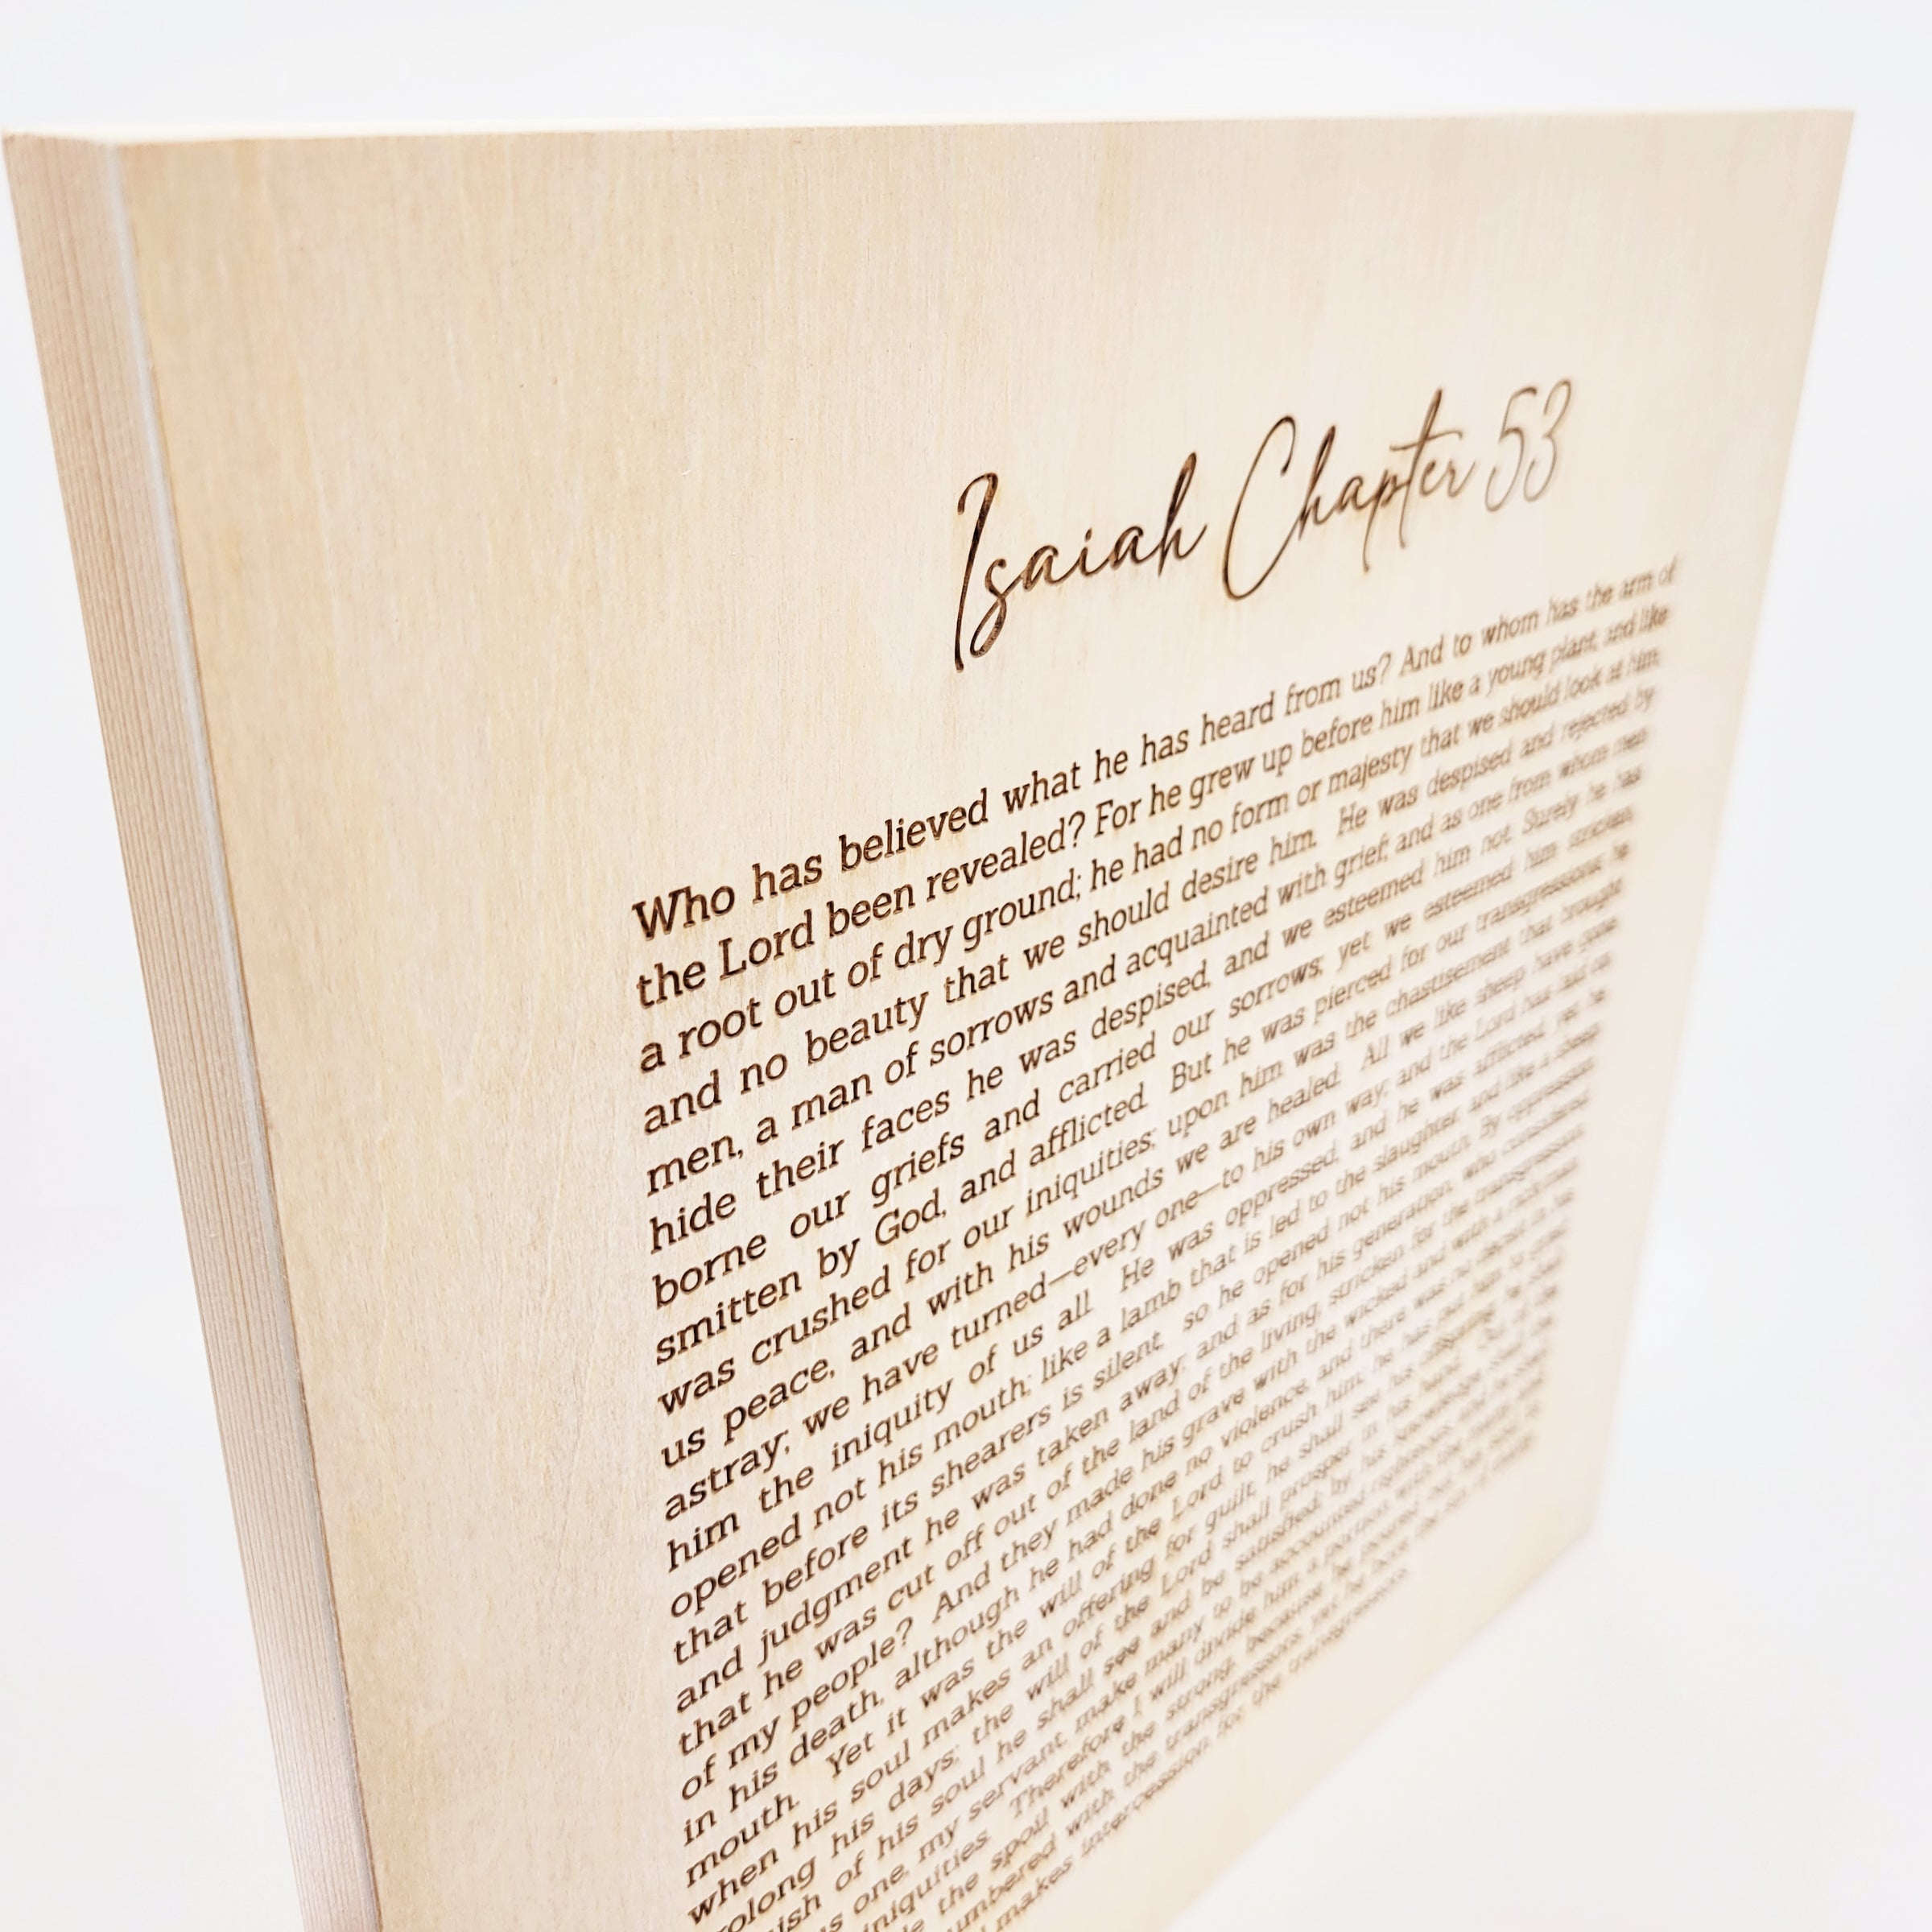 Isaiah Chapter 53
Who has believed what he has heard from us? And to whom has the arm of
the Lord been revealed? For he grew up before him like a young plant, and like
a root out of dry ground; he had no form or majesty that we should look at him,
and no beauty that we should desire him. He was despised and rejected by
men, a man of sorrows and acquainted with grief; and as one from whom men
hide their faces he was despised, and we esteemed him not. Surely he has
borne our griefs and carried our sorrows; yet we esteemed him stricken,
smitten by God, and afflicted. But he was pierced for our transgressions; he
was crushed for our iniquities; upon him was the chastisement that brought
us peace, and with his wounds we are healed. All we like sheep have gone
astray; we have turned—every one—to his own way; and the Lord has laid on
him the iniquity of us all. He was oppressed, and he was afflicted, yet he
opened not his mouth; like a lamb that is led to the slaughter, and like a sheep
that before its shearers is silent, so he opened not his mouth. By oppression
and judgment he was taken away; and as for his generation, who considered
that he was cut off out of the land of the living, stricken for the transgression
of my people? And they made his grave with the wicked and with a rich man
in his death, although he had done no violence, and there was no deceit in his
mouth. Yet it was the will of the Lord to crush him; he has put him to grief;
when his soul makes an offering for guilt, he shall see his offspring; he shall
prolong his days; the will of the Lord shall prosper in his hand. Out of the
of his soul he shall see and be satisfied; by his knowledge shall the
one, my servant, make many to be accounted righteous, and he shall
iniquities. Therefore I will divide him a portion with the many, and
the spoil with the strong, because he poured out his soul to
numbered with the transgressors; yet he bore the sin of many,
makes intercession for the transgressors.